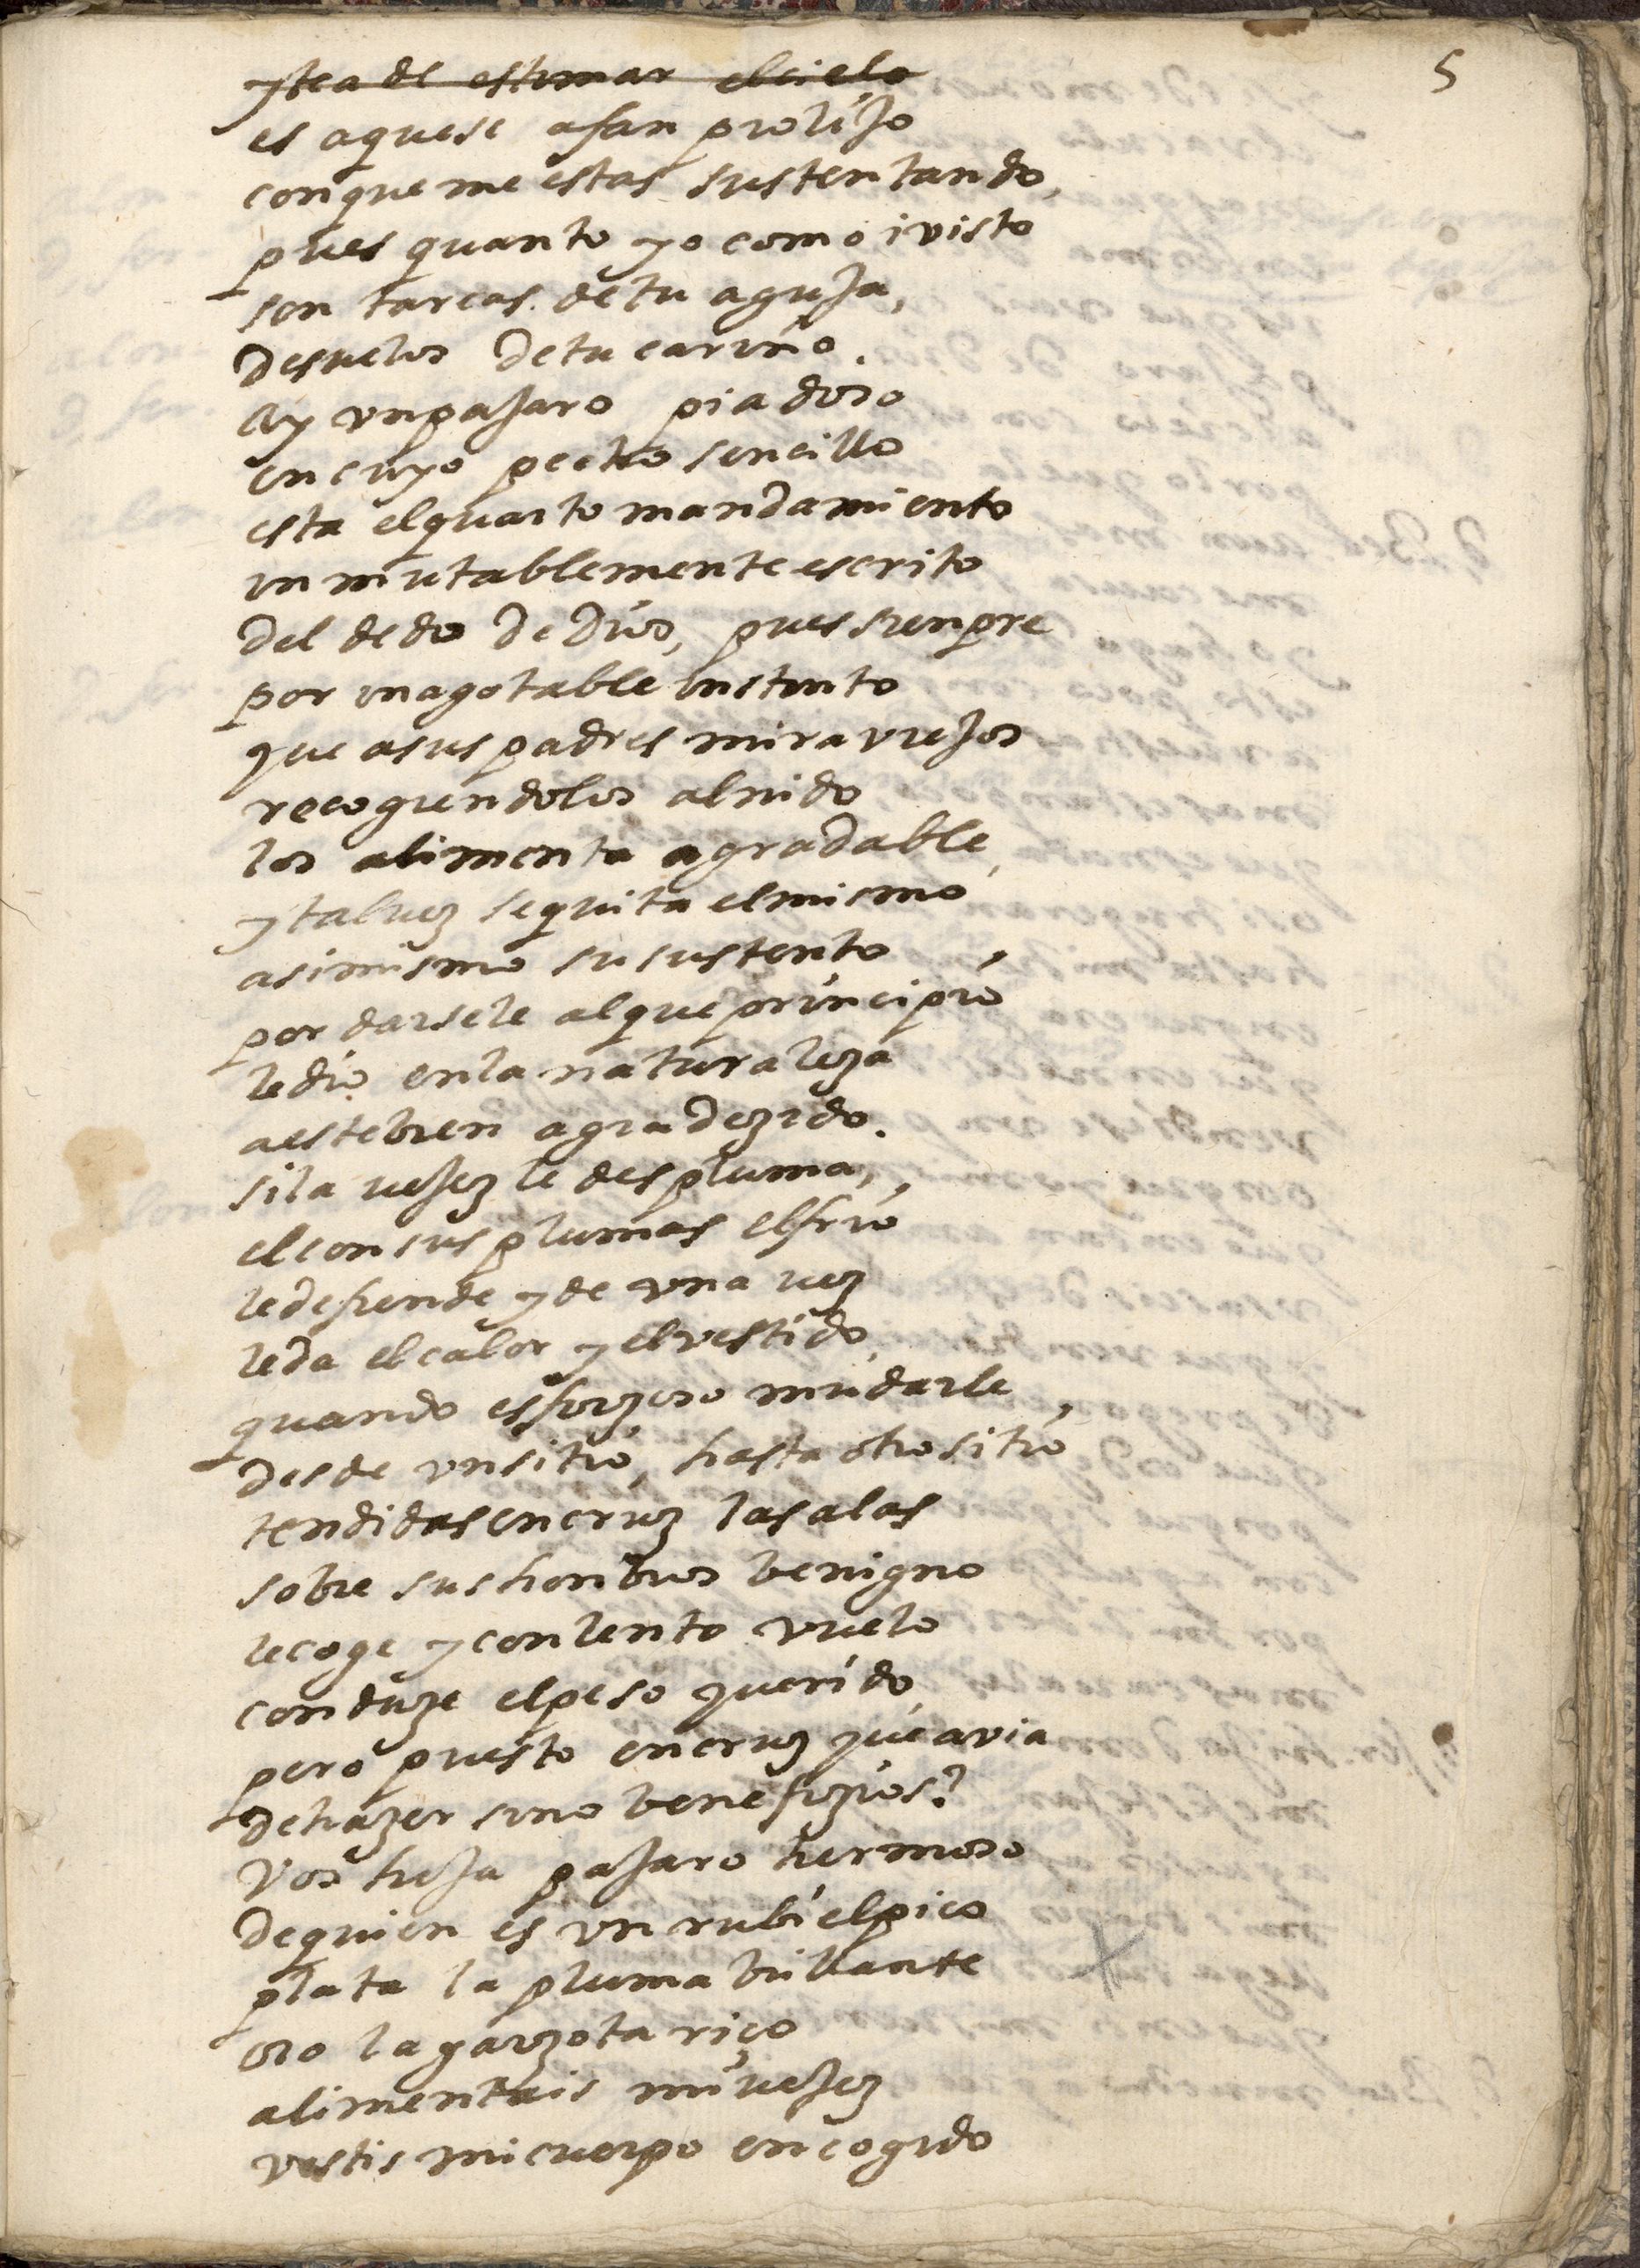 5
y te a de estimar el cielo
es aquese afan prolijo
con que me estas sustentando,
pues quanto yo como i visto
son tareas de tu aguja,
desuelos de tu cariño.
Ay vn pajaro piadoso
en cuyo pecho sencillo
esta el quarto mandamiento
inmutablemente escrito
del dedo de Dios, pues sienpre
por inagotable instinto
que a sus padres mira viejos
recogiendolos al nido
los alimenta agradable,
y tal uez se quita el mismo
a si mismo su sustento
por darsele al que principio
le dio en la naturaleza
a este bien agradezido.
si la uejez le despluma,
el con sus plumas el frio
le defiende y de vna uez
le da el calor y el vestido,
quando es forzoso mudarle
desde vn sitio, hasta otro sitio
tendidas en cruz las alas
sobre sus honbros benigno
le coge y con lento vuelo
conduze el peso querido,
pero puesto en cruz que avia
de hazer sino benefizios?
Vos hija pajaro hermoso
de quien es vn rubi el pico
plata la pluma brillante
oro la garzota riço
alimentais mi uejez
vestis mi cuerpo encogido